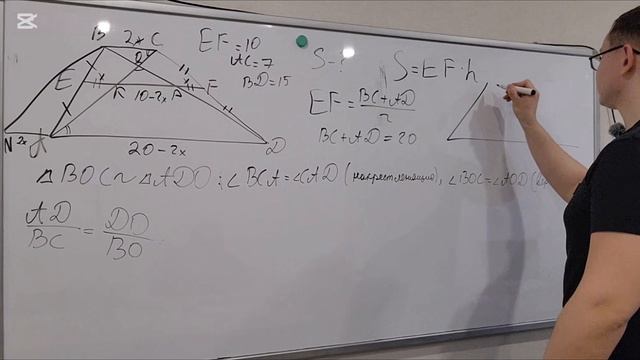 CapCut
B 2x C
EF = 10
AC = 7
BD = 15
S - ?
S = EF · h
E
O
K 10-2x P F
EF = BC + AD / 2
BC + AD = 20
N 2x A
20 - 2x
D
△BOC ~ △ADO ; ∠BCA = ∠CAD (накрест лежащие), ∠BOC = ∠AOD
AD / BC = DO / BO